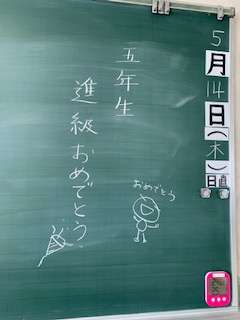 5月14日(木)
日直
五年生
進級おめでとう
おめでとう